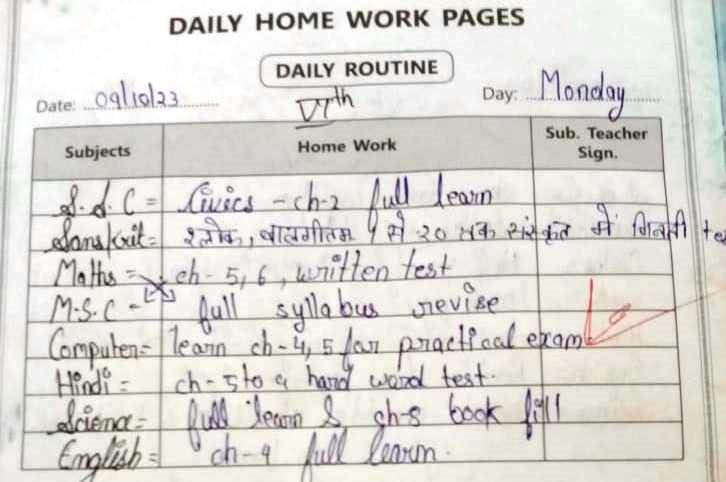 DAILY HOME WORK PAGES
DAILY ROUTINE
Date: 09/10/23 VIth Day: Monday
Subjects Home Work Sub. Teacher Sign.
S.S.C = Civics - ch-2 full learn
Sanskrit = श्लोक, बालगीतम 1 से 20 तक संस्कृत में गिनती
Maths = ch-5,6, written test
M.S.C - full syllabus revise
Computer = learn ch-4,5 for practical exam
Hindi = ch-5 to 9 hard word test.
Science = full learn & ch-8 book fill
English = ch-9 full learn.